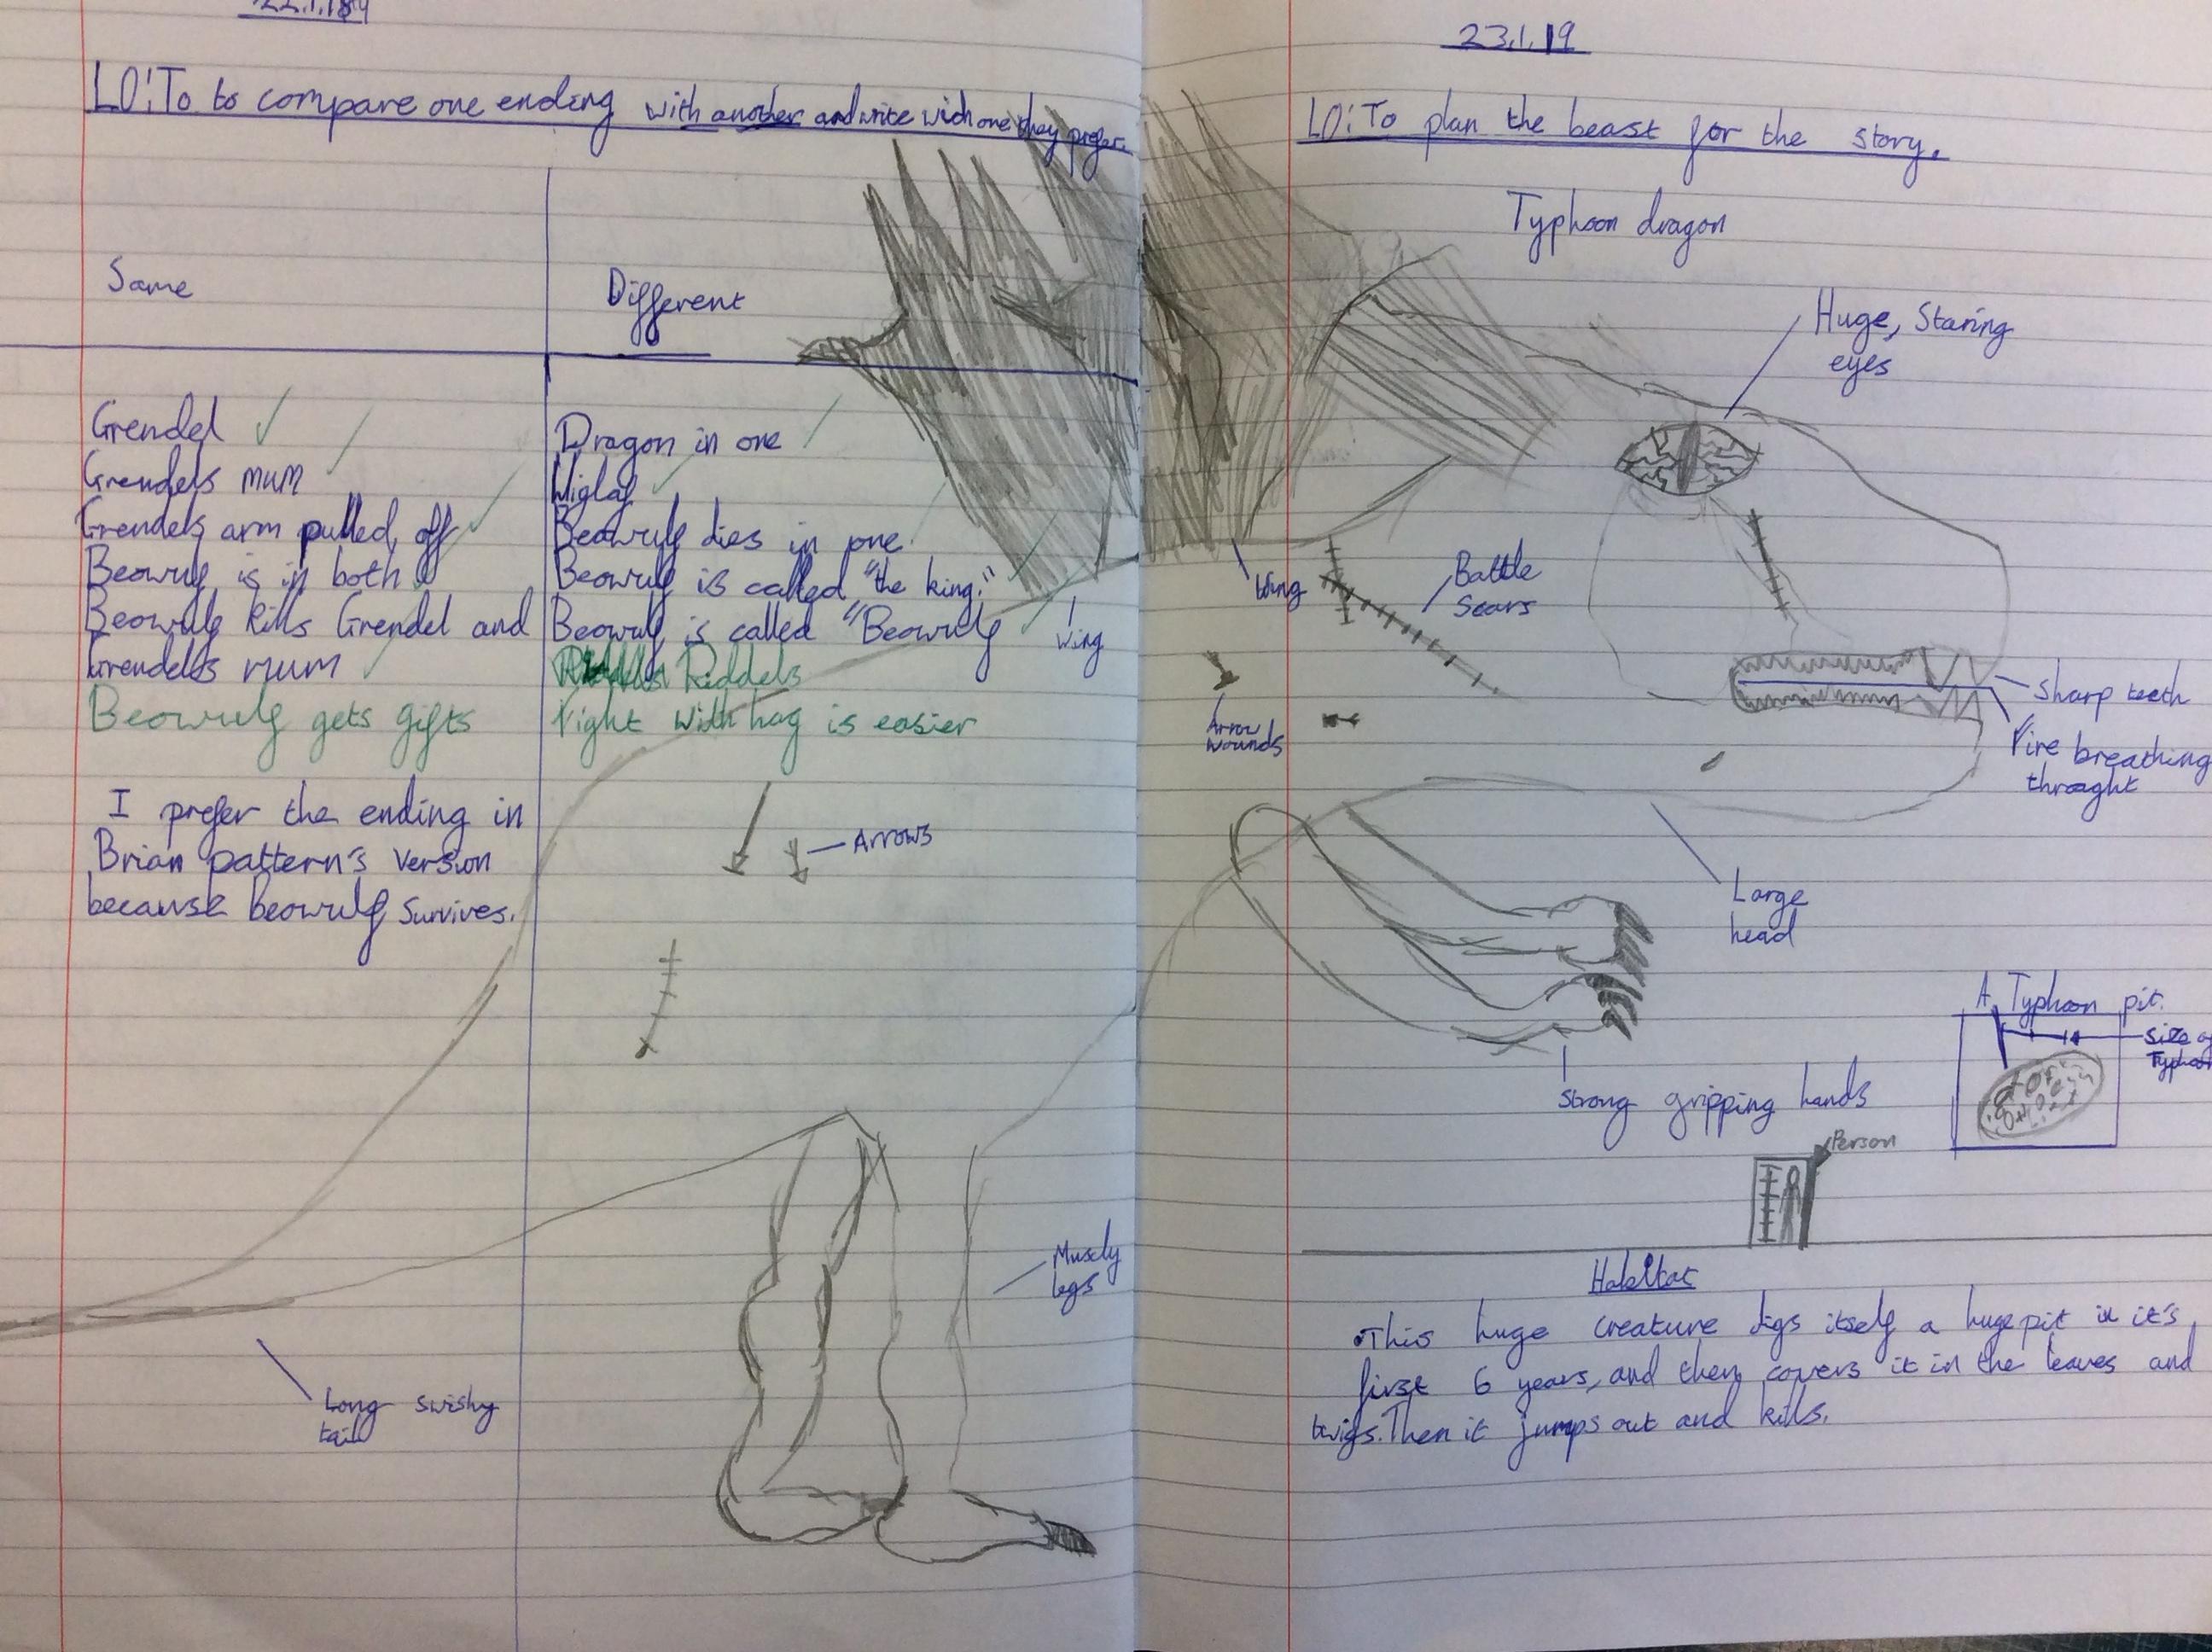 22.1.19
LO: To to compare one ending with another and write wich one they prefer.
Same
Different
Grendel
Grendels mum
Grendels arm pulled off
Beowulf is in both
Beowulf kills Grendel and
Grendels mum
Beowulf gets gifts
Dragon in one
Wiglaf
Beowulf dies in one.
Beowulf is called "the king."
Beowulf is called "Beowulf
Riddels
Fight with hag is easier
I prefer the ending in
Brian pattern's version
because beowulf survives.
wing
Arrows
Muscly
legs
Long swishy
tail
23.1.19
LO: To plan the beast for the story.
Typhoon dragon
Huge, Staring
eyes
Wing
Battle
Scars
Arrow
wounds
Sharp teeth
Fire breathing
throught
Large
head
Strong gripping hands
A Typhoon pit.
Size of
Person
Habitat
•This huge creature digs itself a huge pit in it's
first 6 years, and then covers it in the leaves and
twigs. Then it jumps out and kills.